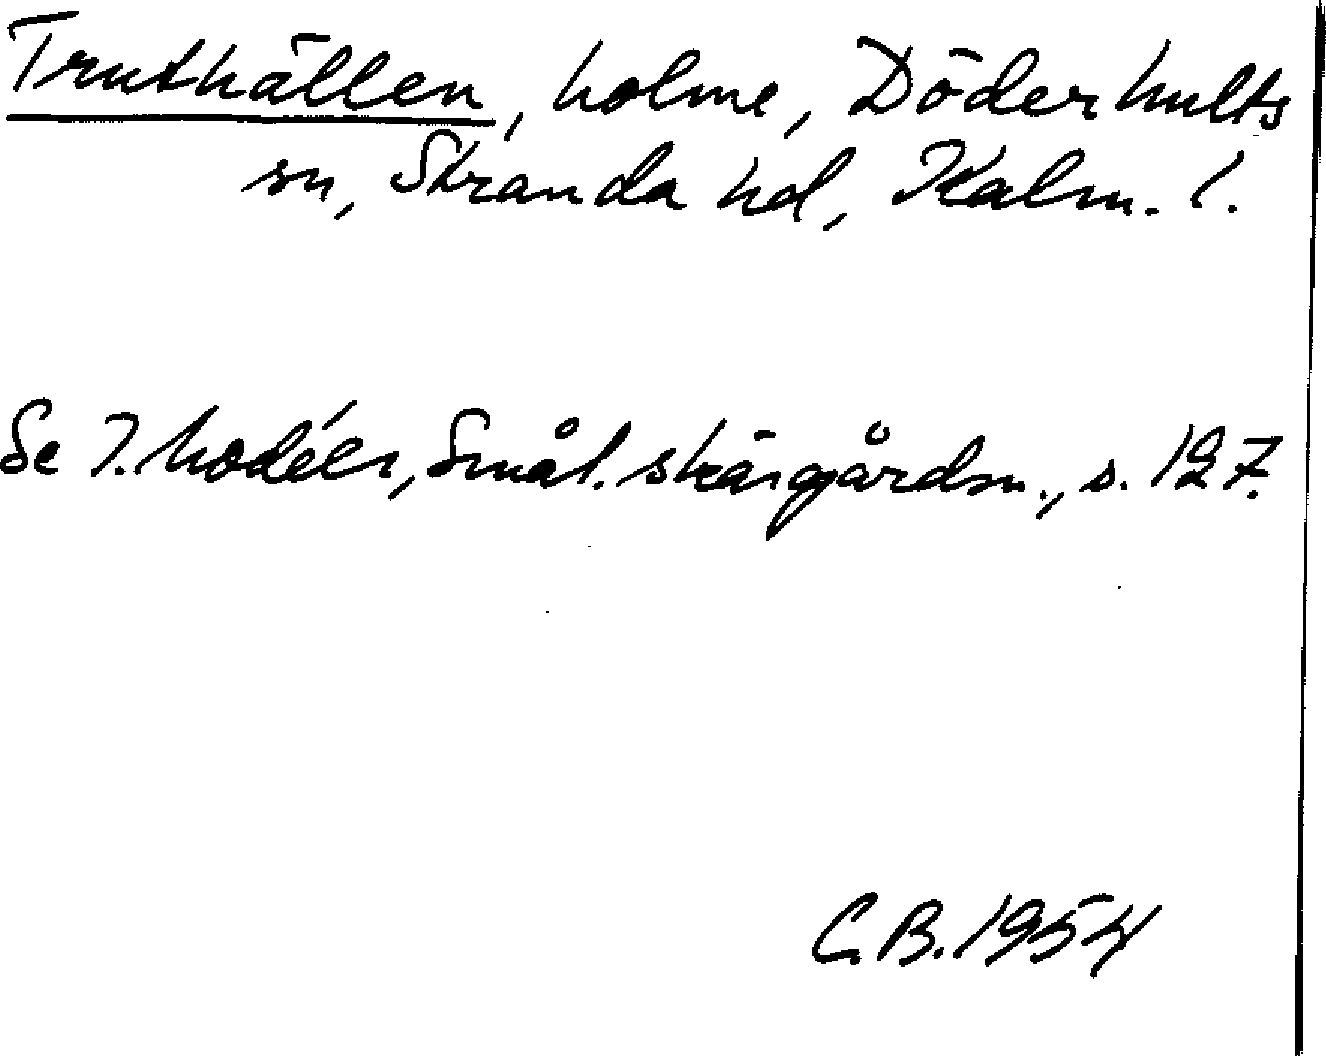 Truthällen, holme, Döderhults
sn, Stranda hd, Kalm. l.
Se I. Modéer, Smål. skärgårdsn., s. 127.
C.B. 1954